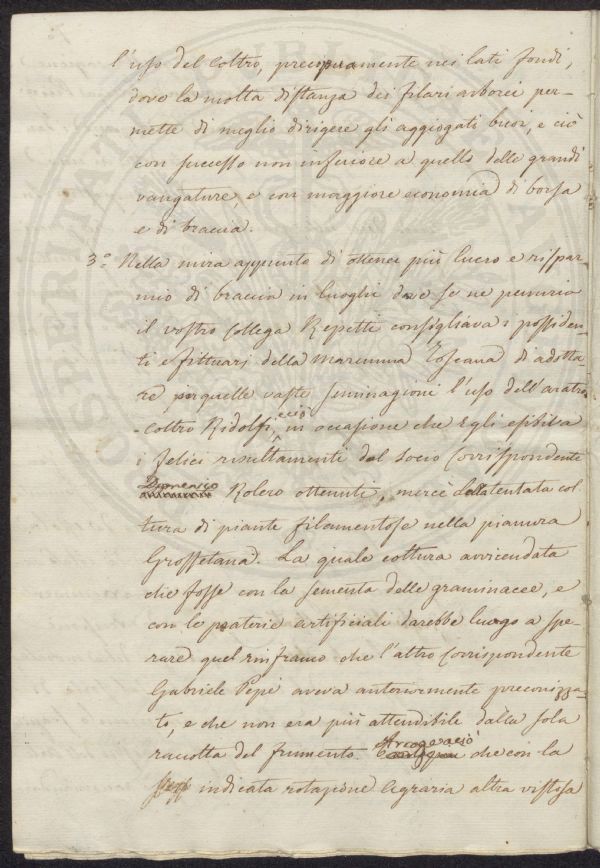 l'uso del coltro, precipuamente nei lati fondi,
dove la molta distanza dei filari arborei per-
mette di meglio dirigere gli aggiogati buoi, e ciò
con successo non inferiore a quello delle grandi
vangature e con maggiore economia di borsa
e di braccia.
3.° Nella mira appunto di ottener più lucro e rispar
mio di braccia in luoghi dove se ne penuria
il vostro collega Repetti consigliava i possiden-
ti e fittuarj della Maremma Toscana di adotta-
re per quelle vaste seminagioni l'uso dell'aratro
-coltro Ridolfi, e ciò in occasione che Egli esibiva
i felici resultamenti dal socio Corrispondente
Domenico
Rolero ottenuti, mercè della tentata col
tura di piante filamentose nella pianura
Grossetana. La quale coltura avvicendata
che fosse con la sementa delle graminacee, e
con le praterie artificiali darebbe luogo a spe-
rare quel rinfranco che l'altro Corrispondente
Gabriele Pepe aveva anteriormente preconizza-
to, e che non era più attendibile dalla sola
raccolta del frumento. Arroge a ciò che con la
indicata rotazione Agraria altra vistosa